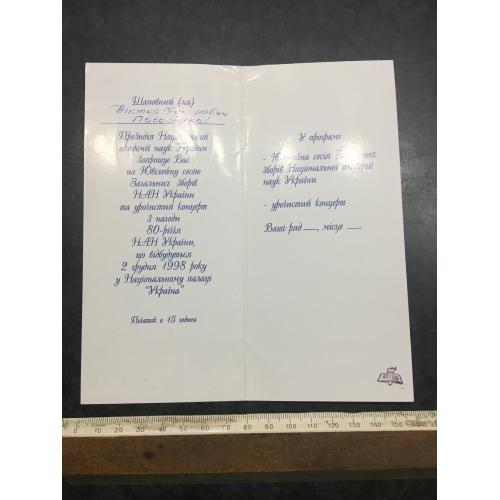 Шановний (па)
Віктор
Президія Національної
академії наук України
запрошує Вас
на Ювілейну сесію
Загальних Зборів
НАН України
та урочистий концерт
з нагоди
80-річчя
НАН України,
що відбудуться
2 грудня 1998 року
у Національному палаці
"Україна"
Початок о 15 годині
У програмі:
- Ювілейна сесія Загальних
Зборів Національної академії
наук України
- урочистий концерт
Ваш: ряд ___, місце ___
0 10 20 30 40 50 60 70 80 90 100 110 120 130 140 150